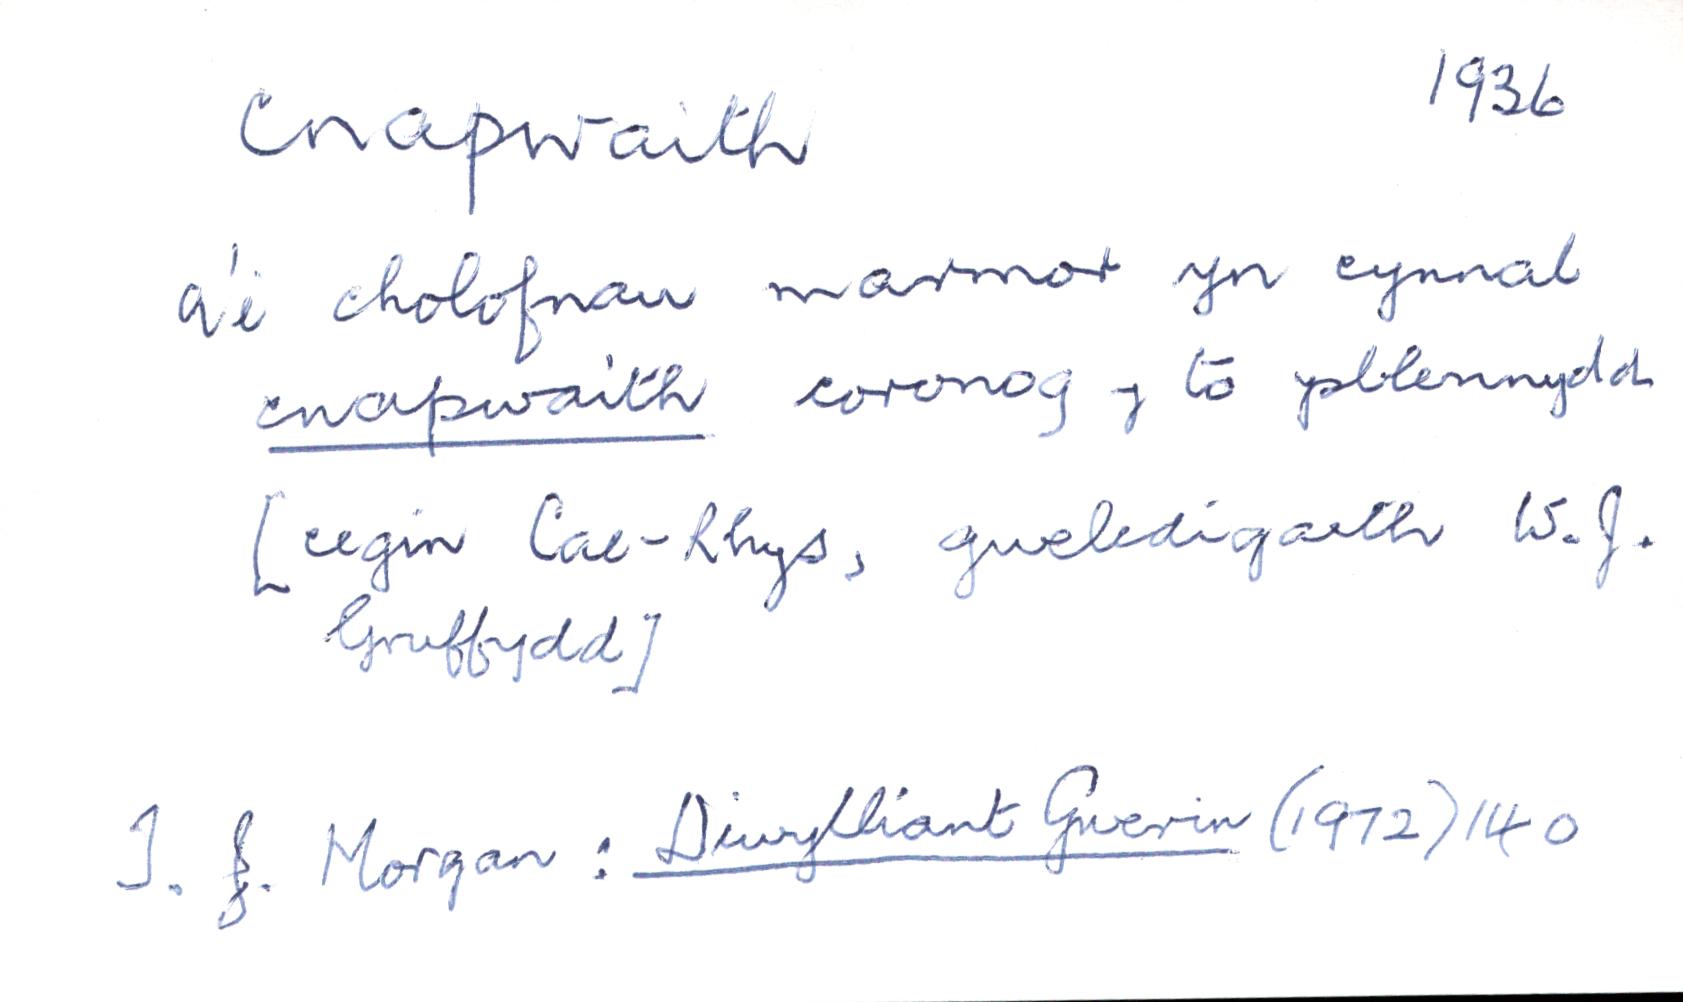 1936
Cnapwaith
a'i cholofnau marmor yn cynnal
cnapwaith coronog y to ysblennydd
[cegin Cae-Rhys, gweledigaeth W. J.
Gruffydd]
T. J. Morgan : Diwylliant Gwerin (1972) 140